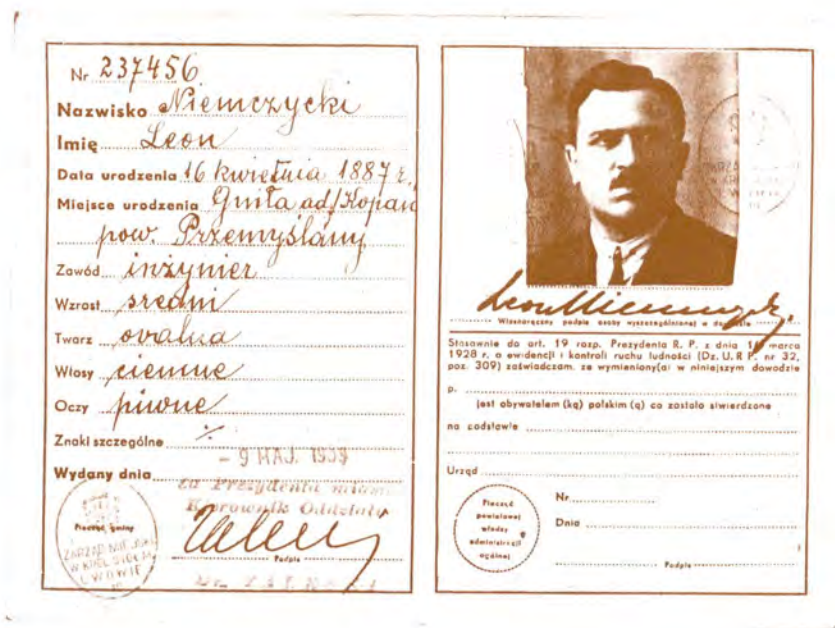 Nr 237456
Nazwisko Niemczycki
Imię Leon
Data urodzenia 16 kwietnia 1887 r.
Miejsce urodzenia Gniła ad/Kopań
pow. Przemyślany
Zawód inżynier
Wzrost średni
Twarz owalna
Włosy ciemne
Oczy piwne
Znaki szczególne ·/·
- 9 MAJ. 1939
Wydany dnia
za Prezydenta miasta
Kierownik Oddziału
Pieczęć gminy
ZARZĄD MIEJSKI
W KRÓL. STOŁ. M.
LWOWIE
Podpis
Leon Niemczycki
Własnoręczny podpis osoby wyszczególnionej w dowodzie
Stosownie do art. 19 rozp. Prezydenta R. P. z dnia 16 marca
1928 r. o ewidencji i kontroli ruchu ludności (Dz. U. R. P. nr 32,
poz. 309) zaświadczam, że wymieniony(a) w niniejszym dowodzie
p.
jest obywatelem (ką) polskim (ą) co zostało stwierdzone
na podstawie
Urząd
Pieczęć
powiatowej
władzy
administracji
ogólnej
Nr
Dnia
Podpis